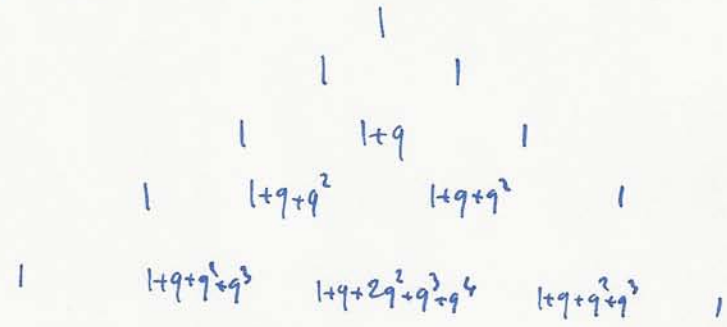 1
1 1
1 1+q 1
1 1+q+q² 1+q+q² 1
1 1+q+q²+q³ 1+q+2q²+q³+q⁴ 1+q+q²+q³ 1